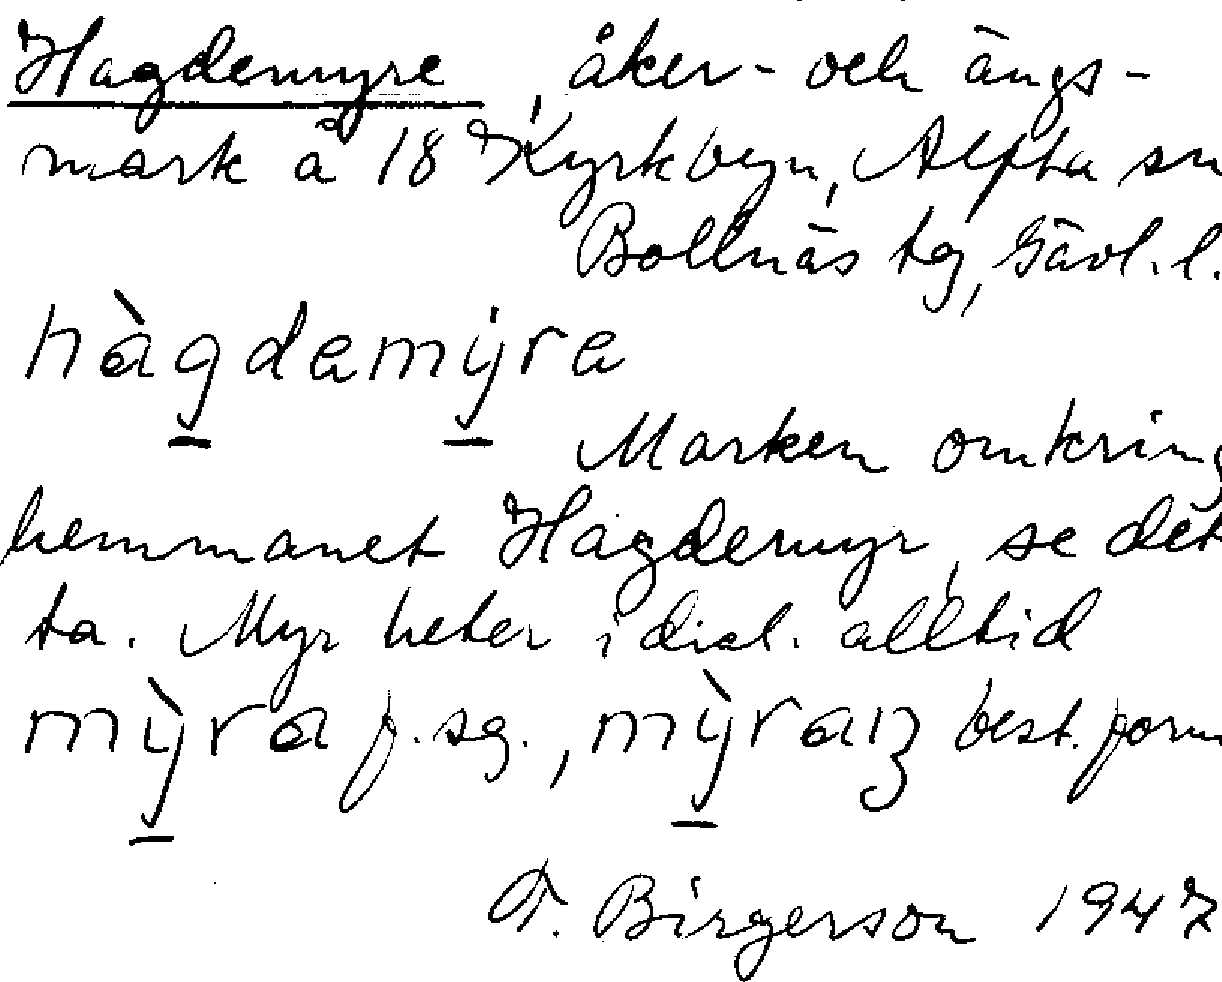 Hagdemyre, åker- och ängs-
mark å 18 Kyrkbyn, Alfta sn
Bollnäs tg, Gävl. l.
hàgdemy̍ra
Marken omkring
hemmanet Hagdemyr, se det
ta. Myr heter i dial. alltid
mỳra f. sg., mỳraɳ best. form
T. Birgerson 1947